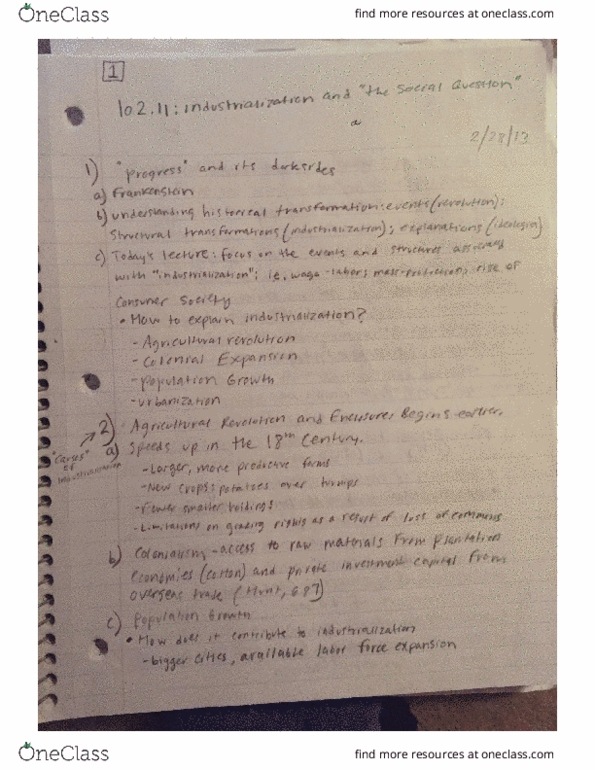 OneClass
find more resources at oneclass.com
1
102.11: industrialization and "the Social Question"
2/28/13
1) "progress" and its darksides
a) Frankenstein
b) understanding historical transformation: events (revolution);
Structural transformations (industrialization); explanations (ideologies)
c) Today's lecture: focus on the events and structures
with "industrialization"; i.e, wage-labor; mass-production; rise of
Consumer Society
• How to explain industrialization?
- Agricultural revolution
- Colonial Expansion
- Population Growth
- urbanization
2) Agricultural Revolution and Enclosures Begins earlier,
"Causes" of industrialization
a) Speeds up in the 18th Century.
- Larger, more farms
- New crops: potatoes over turnips
- Fewer smaller holdings
- Limitations on grazing rights as a result of loss of commons
b) Colonialism - access to raw materials from plantation
economies (cotton) and private investment capital from
overseas trade (Hunt, 687)
c) Population Growth
• How does it contribute to industrialization
- bigger cities, available labor force expansion
OneClass
find more resources at oneclass.com